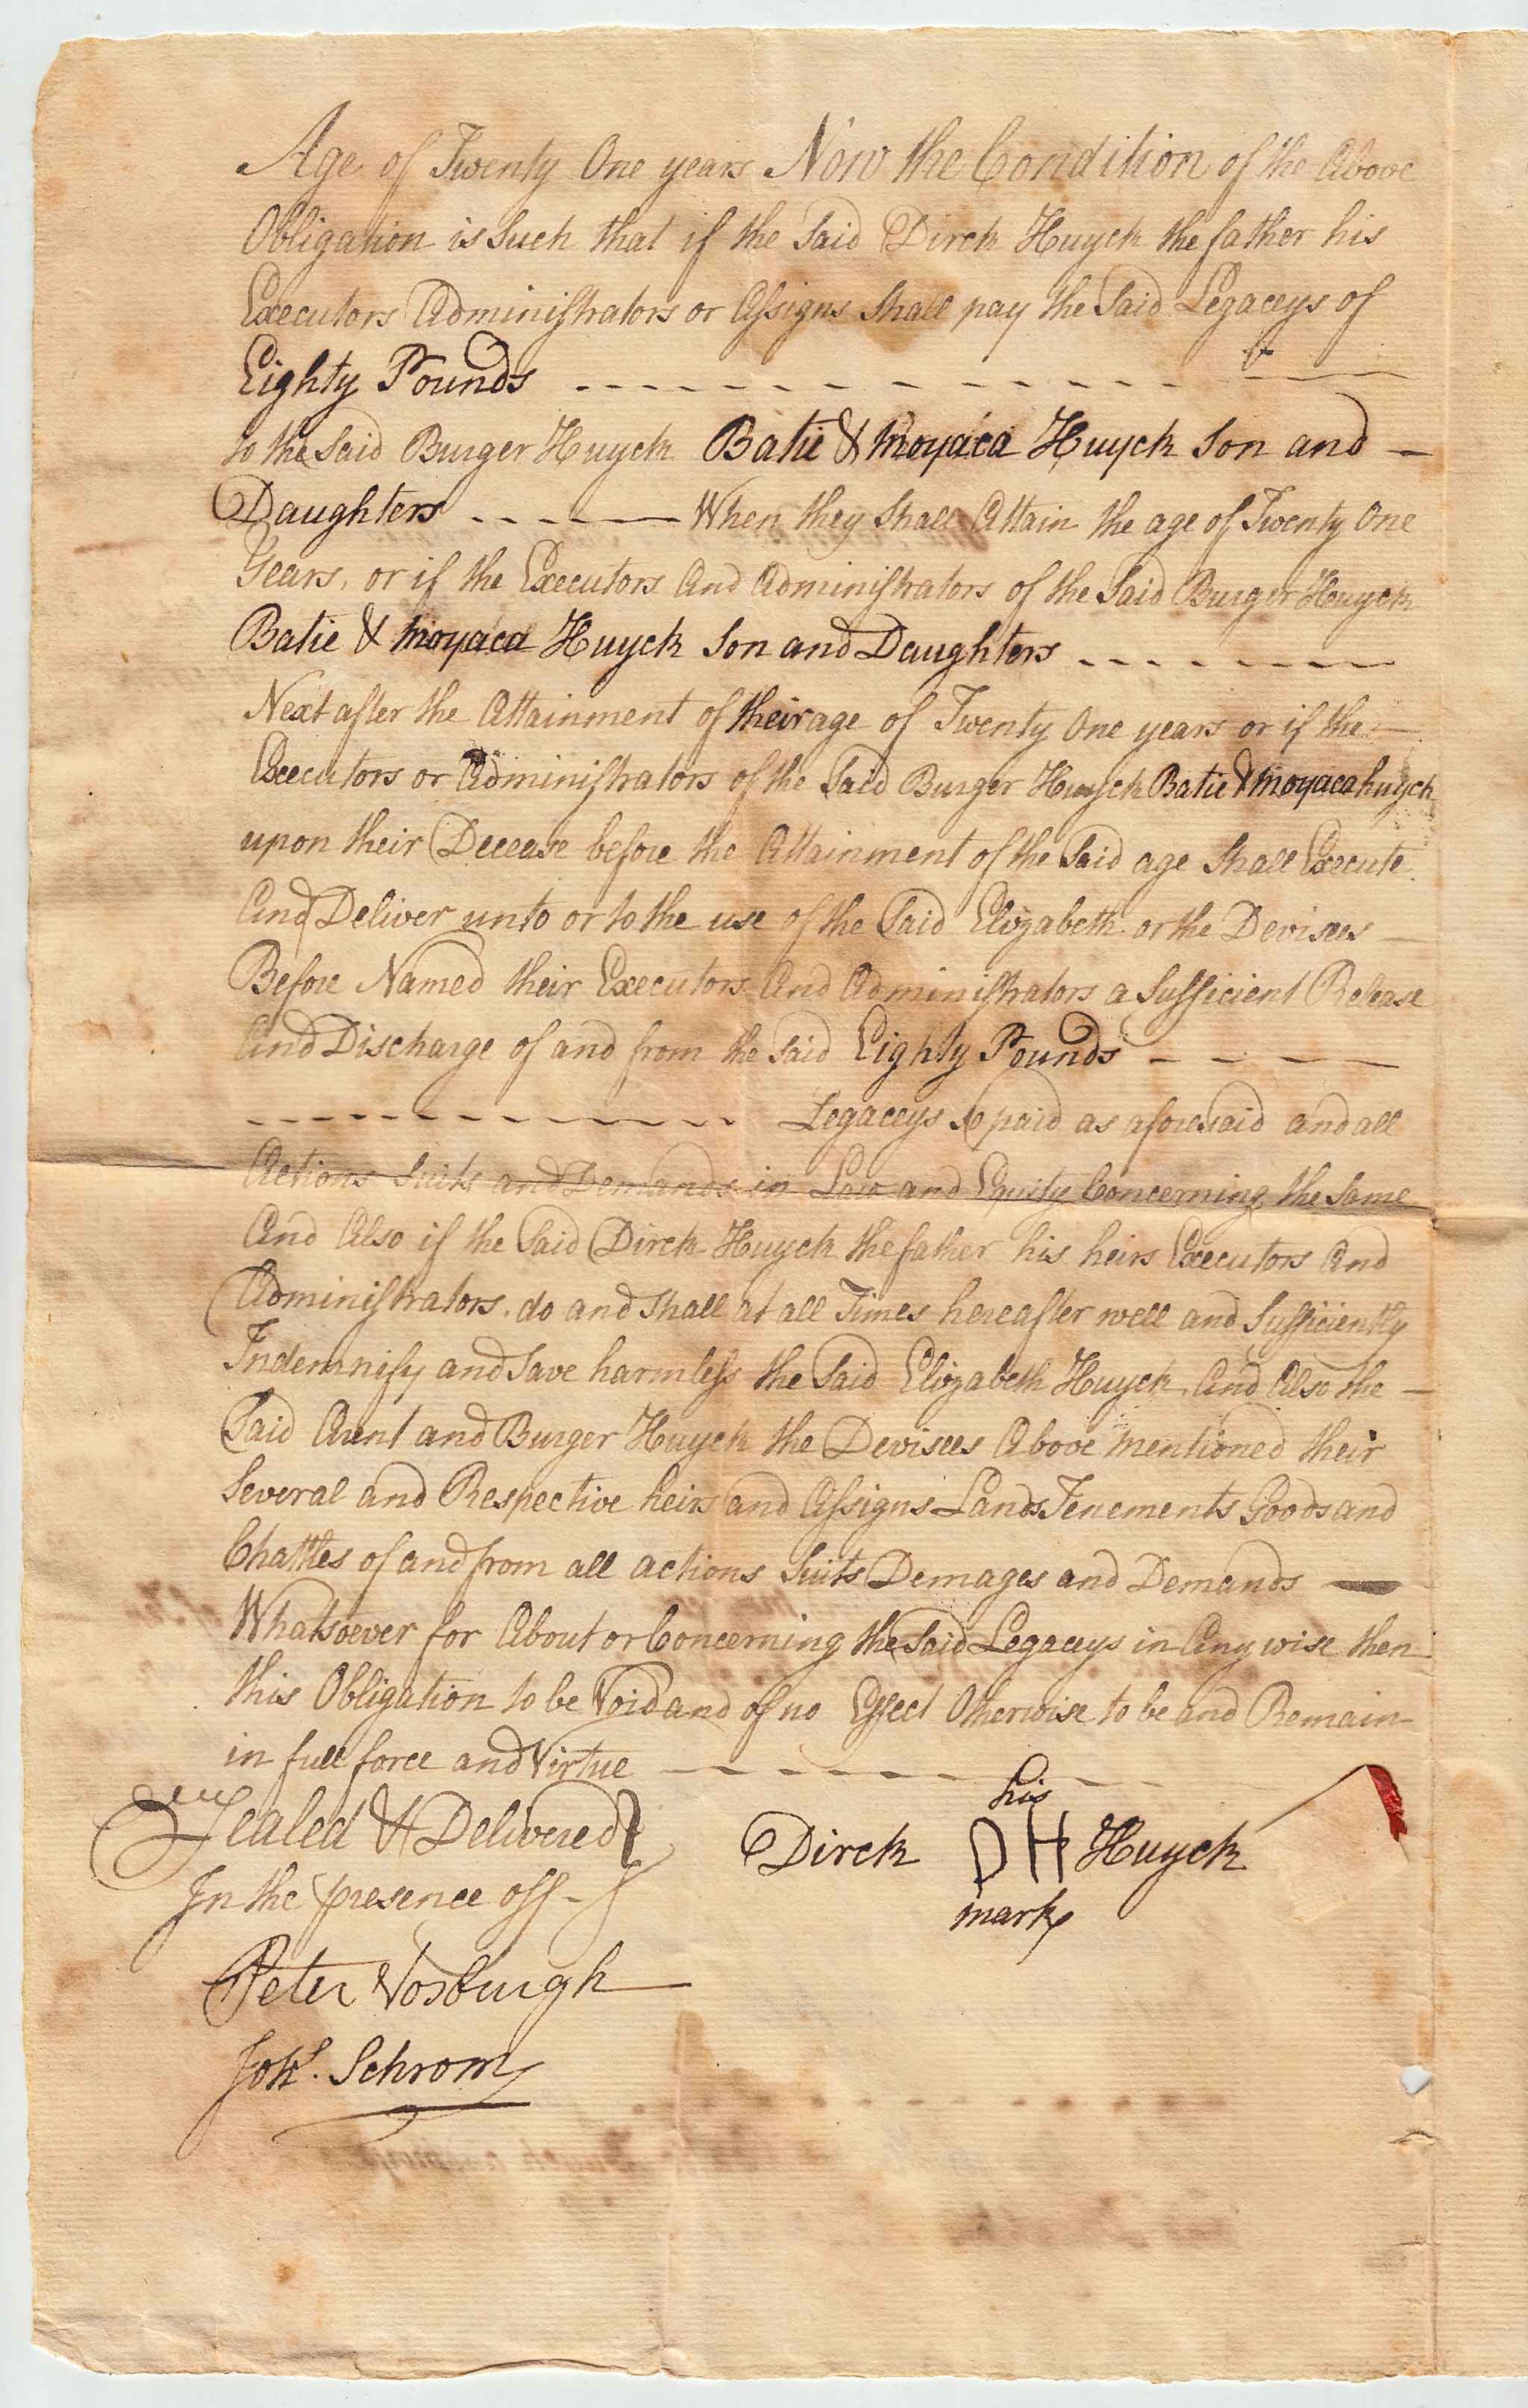 Age of Twenty One years Now the Condition of the Above
Obligation is Such that if the Said Dirck Huyck the father his
Executors Administrators or Assigns Shall pay the Said Legaceys of
Eighty Pounds
to the Said Burger Huyck Batie & Moyaca Huyck Son and
Daughters When they Shall Attain the age of Twenty One
Years, or if the Executors And Administrators of the Said Burger Huyck
Batie & Moyaca Huyck Son and Daughters
Next after the Attainment of their age of Twenty One years or if the
Executors or Administrators of the Said Burger Huyck Batie & Moyaca huyck
upon their Decease before the Attainment of the Said age Shall Execute
And Deliver unto or to the use of the Said Elizabeth or the Devisees
Before Named their Executors And Administrators a Sufficient Release
And Discharge of and from the Said Eighty Pounds
Legaceys so paid as aforesaid and all
Actions Suits and Demands in Law and Equity Concerning the Same
And Also if the Said Dirck Huyck the father his heirs Executors And
Administrators. do and Shall at all Times hereafter well and Sufficiently
Indemnify and Save harmless the Said Elizabeth Huyck. And Also the
Said Arent and Burger Huyck the Devisees Above mentioned their
Several and Respective heirs and Assigns Lands Tenements Goods and
Chattles of and from all actions Suits Demages and Demands
Whatsoever for About or Concerning the Said Legaceys in Any wise then
this Obligation to be Void and of no Effect Otherwise to be and Remain
in full force and Virtue
Sealed & Delivered
In the presence off
his
Dirck DH Huyck
mark
Peter Vosburgh
Johs. Schrom